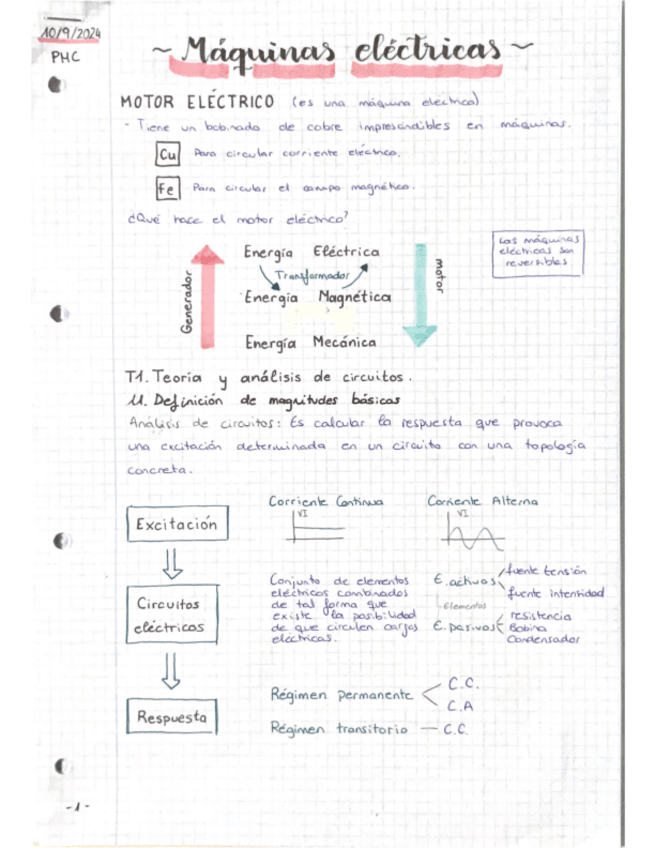 10/9/2024
PHC
~ Máquinas eléctricas ~
MOTOR ELÉCTRICO (es una máquina eléctrica)
- Tiene un bobinado de cobre imprescindibles en máquinas.
Cu Para circular corriente eléctrica.
Fe Para circular el campo magnético.
¿Qué hace el motor eléctrico?
Las máquinas
eléctricas son
reversibles
Generador
Energía Eléctrica
Transformador
Energía Magnética
Energía Mecánica
motor
T1. Teoría y análisis de circuitos.
1.1. Definición de magnitudes básicas
Análisis de circuitos: Es calcular la respuesta que provoca
una excitación determinada en un circuito con una topología
concreta.
Excitación
Corriente Continua
VI
Corriente Alterna
VI
Circuitos
eléctricos
Conjunto de elementos
eléctricos combinados
de tal forma que
existe la posibilidad
de que circulen cargas
eléctricas.
Elementos
E. activos
fuente tensión
fuente intensidad
E. pasivos
resistencia
Bobina
Condensador
Respuesta
Régimen permanente
C.C.
C.A
Régimen transitorio — C.C.
-1-